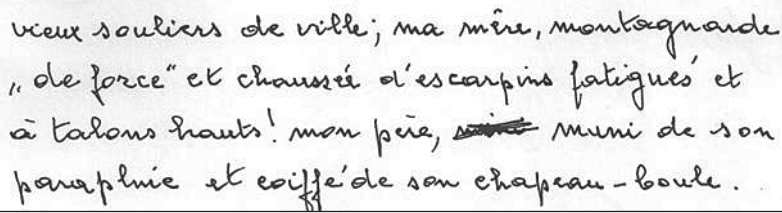 vieux souliers de ville; ma mère, montagnarde
„de force" et chaussée d'escarpins fatigués et
à talons hauts! mon père, muni de son
parapluie et coiffé de son chapeau-boule.